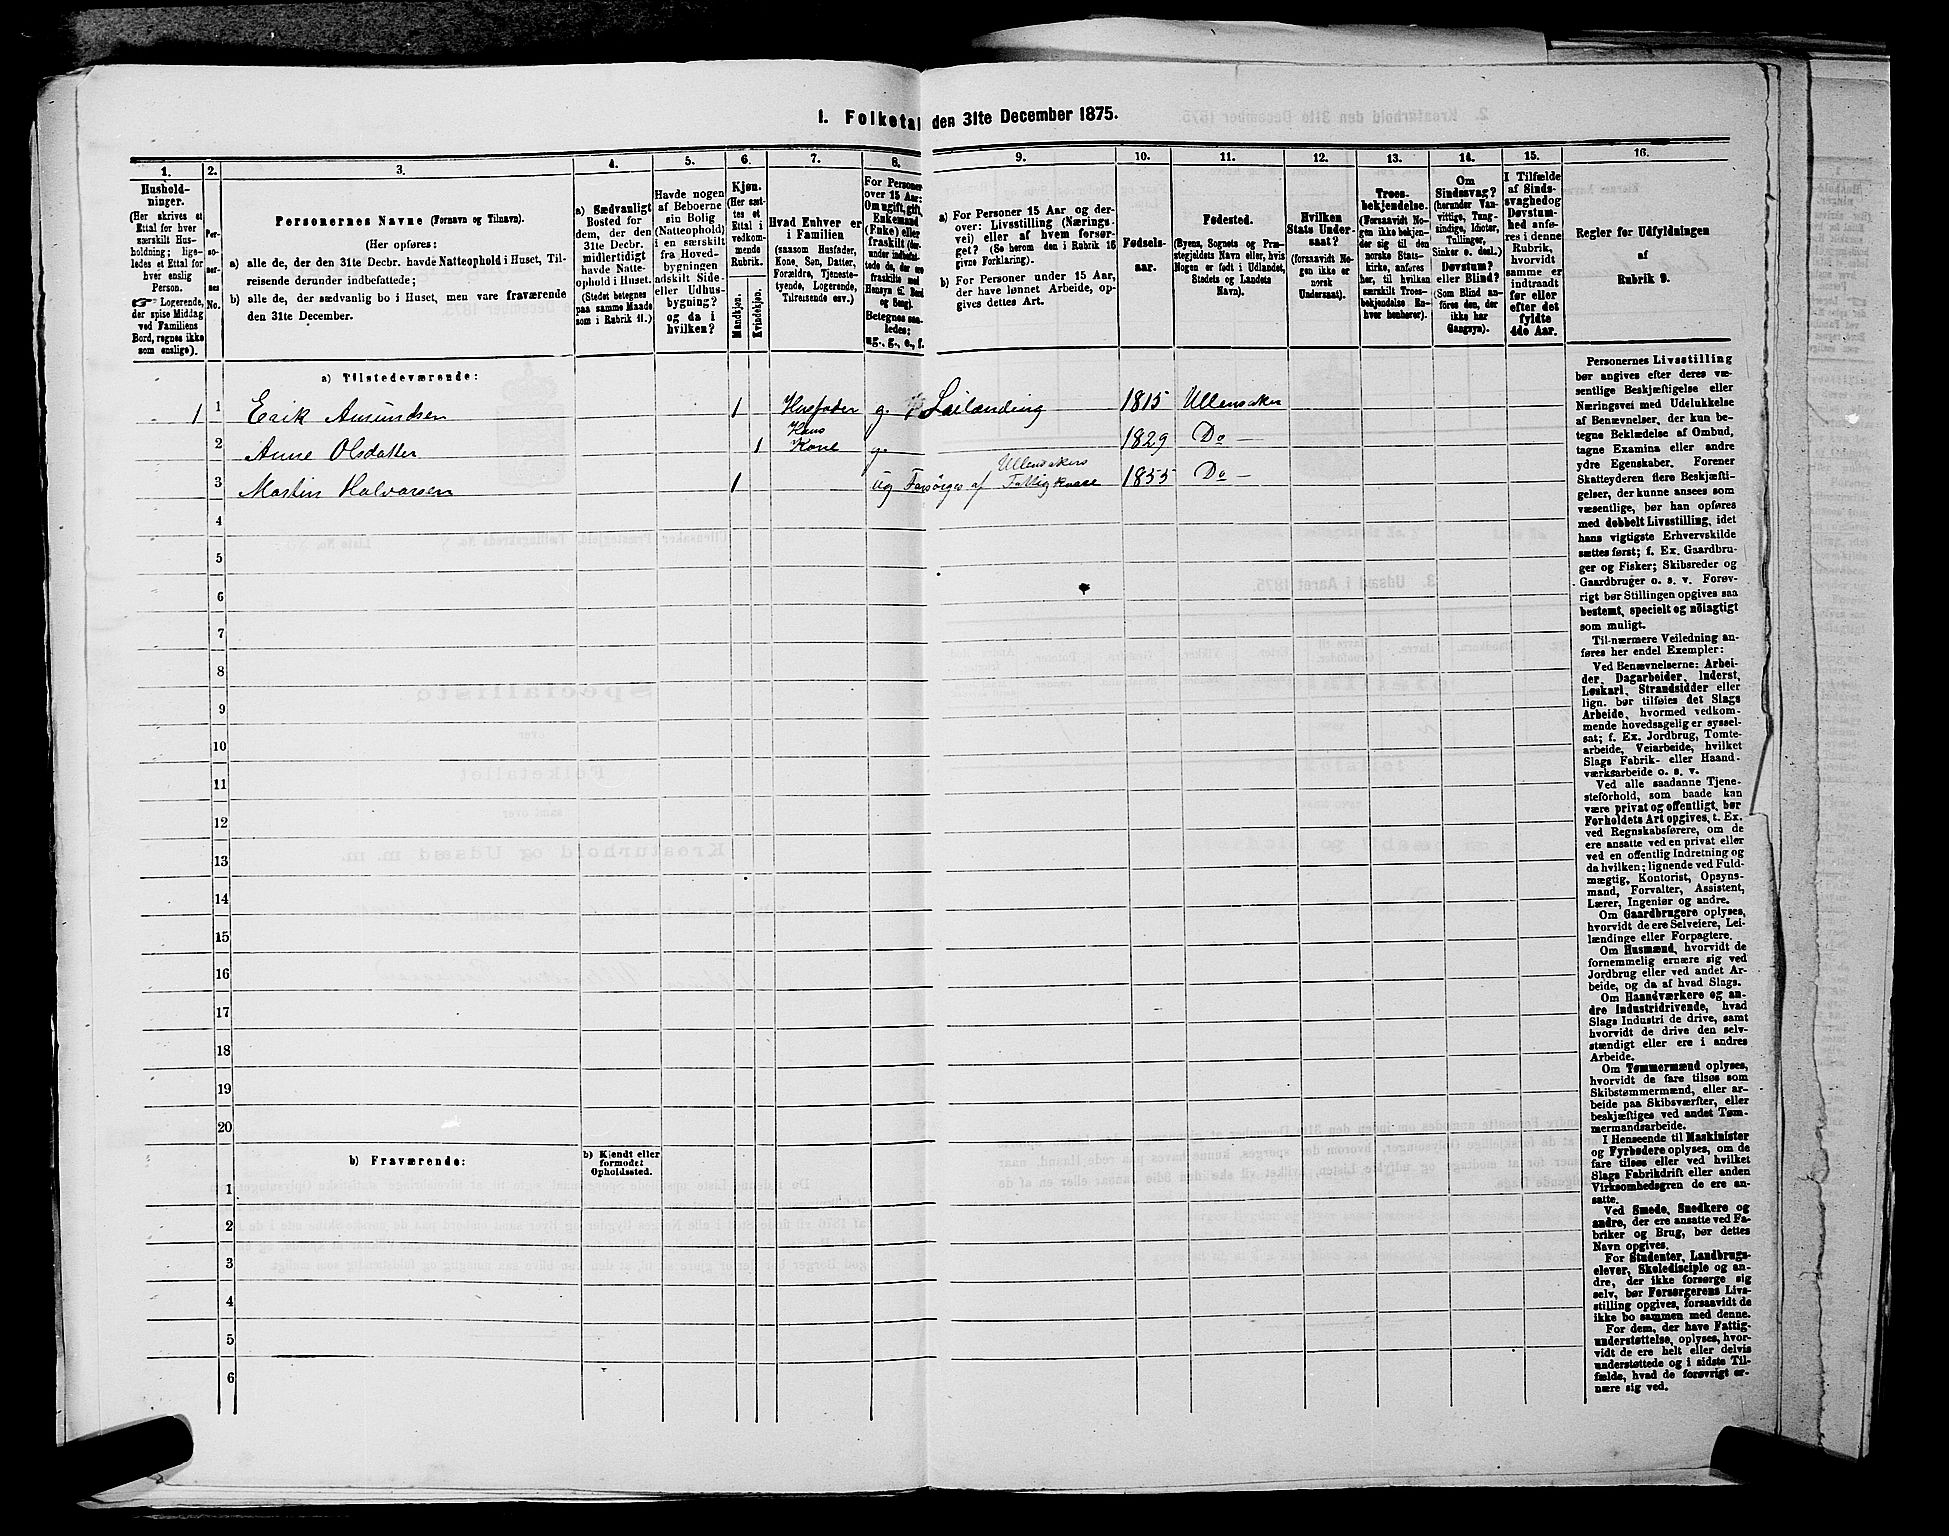 1. Folketal den 31te December 1875.
1.
2.
3.
4.
5.
6.
7.
8.
9.
10.
11.
12.
13.
14.
15.
16.
Hushold-
ninger.
(Her skrives et
Ettal for hver
særskilt Hus-
holdning; lige-
ledes et Ettal for
hver enslig
Person.
☞ Logerende,
der spise Middag
ved Familiens
Bord, regnes ikke
som enslige).
Per-
so-
ner-
nes
No.
Personernes Navne (Fornavn og Tilnavn).
(Her opføres:
a) alle de, der den 31te Decbr. havde Natteophold i Huset, Til-
reisende derunder indbefattede;
b) alle de, der sædvanlig bo i Huset, men vare fraværende
den 31te December.
a) Sædvanligt
Bosted for
dem, der den
31te Decbr.
midlertidigt
havde Natte-
ophold i Huset.
(Stedet betegnes
paa samme Maade
som i Rubrik 11.)
Havde nogen
af Beboerne
sin Bolig
(Natteophold)
i en særskilt
fra Hoved-
bygningen
adskilt Side-
eller Udhus-
bygning?
og da i
hvilken?
Kjøn.
(Her sæt-
tes et
Ettal i
vedkom-
mende
Rubrik.
Mandkjøn.
Kvindekjøn.
Hvad Enhver er
i Familien
(saasom Husfader,
Kone, Søn, Datter,
Forældre, Tjeneste-
tyende, Logerende,
Tilreisende osv.)
For Personer
over 15 Aar:
Om ugift, gift,
Enkemand
(Enke) eller
fraskilt (der-
under indbefat-
tede de, der ere
fraskilte med
Hensyn til Bord
og Seng).
Betegnes saa-
ledes:
ug., g., e., f.
a) For Personer 15 Aar og der-
over: Livsstilling (Nærings-
vei) eller af hvem forsør-
get? (Se herom den i Rubrik 16
givne Forklaring).
b) For Personer under 15 Aar,
der have lønnet Arbeide, op-
gives dettes Art.
Fødsels-
aar.
Fødested.
(Byens, Sognets og Præ-
stegjeldets Navn eller, hvis
Nogen er født i Udlandet,
Stedets og Landets
Navn).
Hvilken
Stats Under-
saat?
(forsaavidt No-
gen ikke er
norsk
Undersaat).
Troes-
bekjendelse.
(Forsaavidt No-
gen ikke bekjen-
der sig til den
norske Stats-
kirke, anføres
her, til hvilken
særskilt Troes-
bekjendelse En-
hver henhører).
Om
Sindssvag?
(herunder Van-
vittige, Tung-
sindige, Idioter,
Tullinger,
Sinker o. desl.)
Døvstum?
eller Blind?
(Som Blind an-
føres den, der
ikke har
Gangsyn).
I Tilfælde
af Sinds-
svaghedog
Døvstum-
hed anfø-
res i denne
Rubrik,
hvorvidt
samme er
indtraadt
før eller
efter det
fyldte
4de Aar.
Regler for Udfyldningen
af
Rubrik 9.
a) Tilstedeværende:
1 1 Erik Amundsen 1 Husfader g. Leilænding 1815 Ullensaker
2 Anne Olsdatter 1 Hans Kone g. 1829 Do —
3 Martin Halvorsen 1 ug Forsørges af Ullensakers Fattigkasse 1855 Do —
4
5
6
7
8
9
10
11
12
13
14
15
16
17
18
19
20
b) Fraværende:
b) Kjendt eller
formodet
Opholdssted.
1
2
3
4
5
6
Personernes Livsstilling
bør angives efter deres væ-
sentlige Beskjæftigelse eller
Næringsvei med Udelukkelse
af Benævnelser, der kun be-
tegne Beklædelse af Ombud,
tagne Examina eller andre
ydre Egenskaber. Forener
Skatteyderen flere Beskjæfti-
gelser, der kunne ansees som
væsentlige, bør han opføres
med dobbelt Livsstilling, idet
hans vigtigste Erhvervskilde
sættes først; f. Ex. Gaardbru-
ger og Fisker; Skibsreder og
Gaardbruger o. s. v. Forøv-
rigt bør Stillingen opgives saa
bestemt, specielt og nöiagtigt
som muligt.
Til nærmere Veiledning an-
føres her endel Exempler:
Ved Benævnelserne: Arbei-
der, Dagarbeider, Inderst,
Løskarl, Strandsidder eller
lign. bør tilføies det Slags
Arbeide, hvormed vedkom-
mende hovedsagelig er syssel-
sat; f. Ex. Jordbrug, Tomte-
arbeide, Veiarbeide, hvilket
Slags Fabrik- eller Haand-
værksarbeide o. s. v.
Ved alle saadanne Tjene-
steforhold, som baade kan
være privat og offentligt, bør
Forholdets Art opgives, t. Ex.
ved Regnskabsførere, om de
ere ansatte ved en privat eller
ved en offentlig Indretning og
da hvilken; lignende ved Fuld-
mægtig, Kontorist, Opsyns-
mand, Forvalter, Assistent,
Lærer, Ingeniør og andre.
Om Gaardbrugere oplyses,
hvorvidt de ere Selveiere, Lei-
lændinge eller Forpagtere.
Om Husmænd, hvorvidt de
fornemmelig ernære sig ved
Jordbrug eller ved andet Ar-
beide, og da af hvad Slags.
Om Haandværkere og an-
dre Industridrivende, hvad
Slags Industri de drive, samt
hvorvidt de drive den selv-
stændigt eller ere i andres
Arbeide.
Om Tømmermænd oplyses,
hvorvidt de fare tilsøs som
Skibstømmermænd, eller ar-
beide paa Skibsværfter, eller
beskjæftiges ved andet Tøm-
mermandsarbeide.
I Henseende til Maskinister
og Fyrbødere oplyses, om de
fare tilsøs eller ved hvilket
Slags Fabrikdrift eller anden
Virksomhedsgren de ere an-
satte.
Ved Smede, Snedkere og
andre, der ere ansatte ved Fa-
briker og Brug, bør dettes
Navn opgives.
For Studenter, Landbrugs-
elever, Skoledisciple og an-
dre, der ikke forsørge sig
selv, bør Forsørgerens Livs-
stilling opgives, forsaavidt de
ikke bo sammen med denne.
For dem, der have Fattig-
understøttelse, oplyses, hvor-
vidt de ere helt eller delvis
understøttede og i sidste Til-
fælde, hvad de forøvrigt er-
nære sig ved.